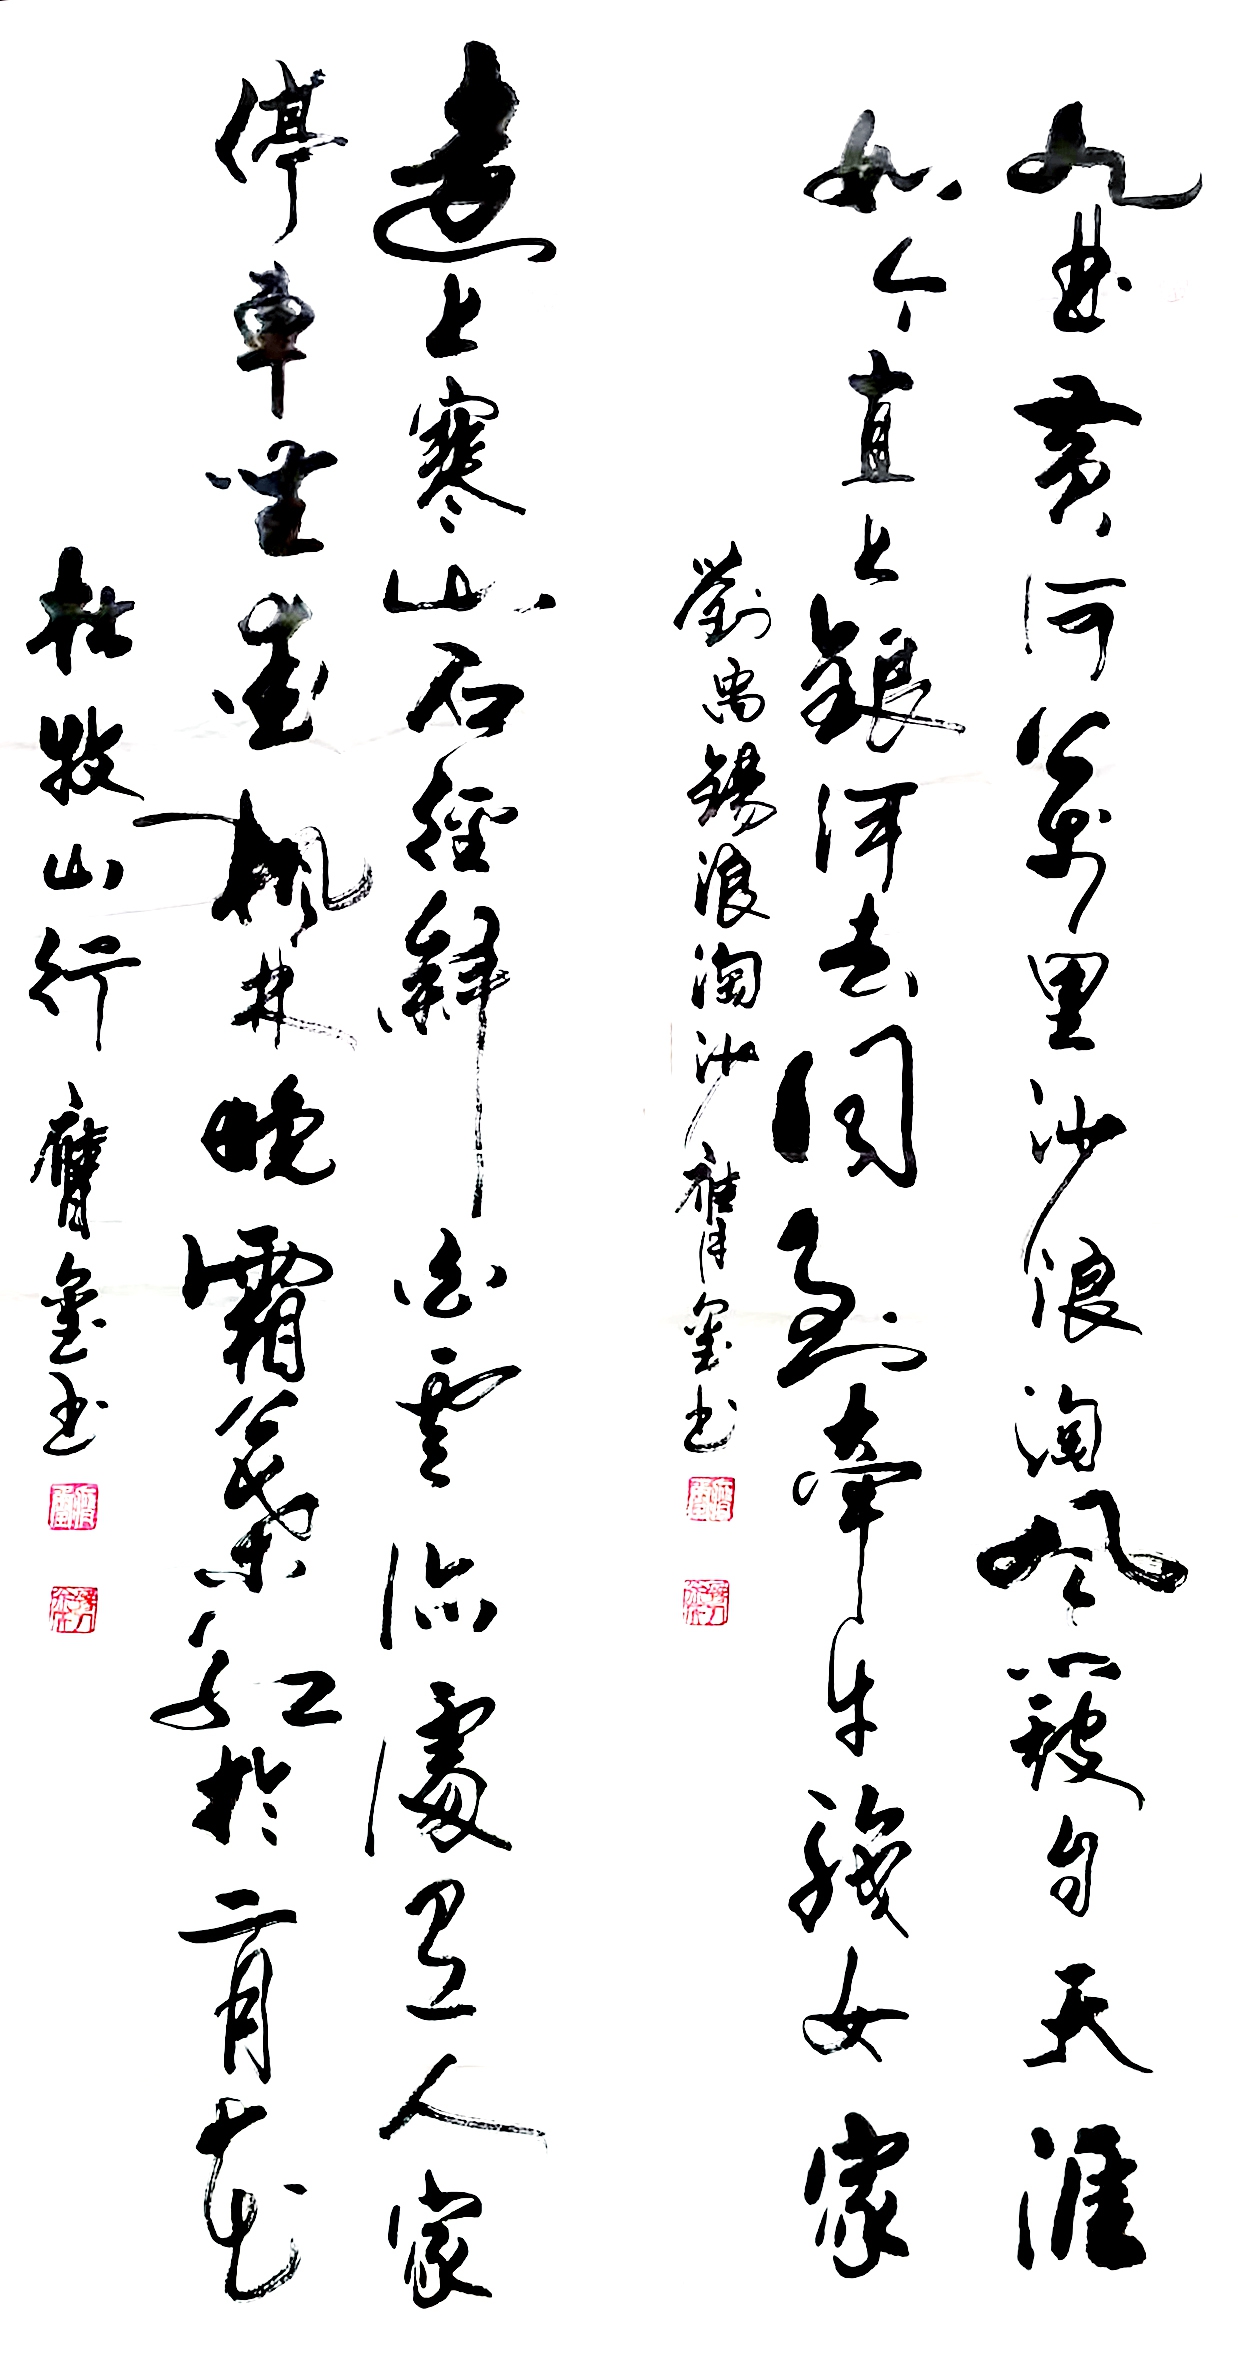 九曲黄河萬里沙浪淘風簸自天涯
如今直上銀河去同到牽牛織女家
劉禹錫浪淘沙膺璽书
遠上寒山石徑斜白雲深處有人家
停車坐愛楓林晚霜葉紅於二月花
杜牧山行膺璽书